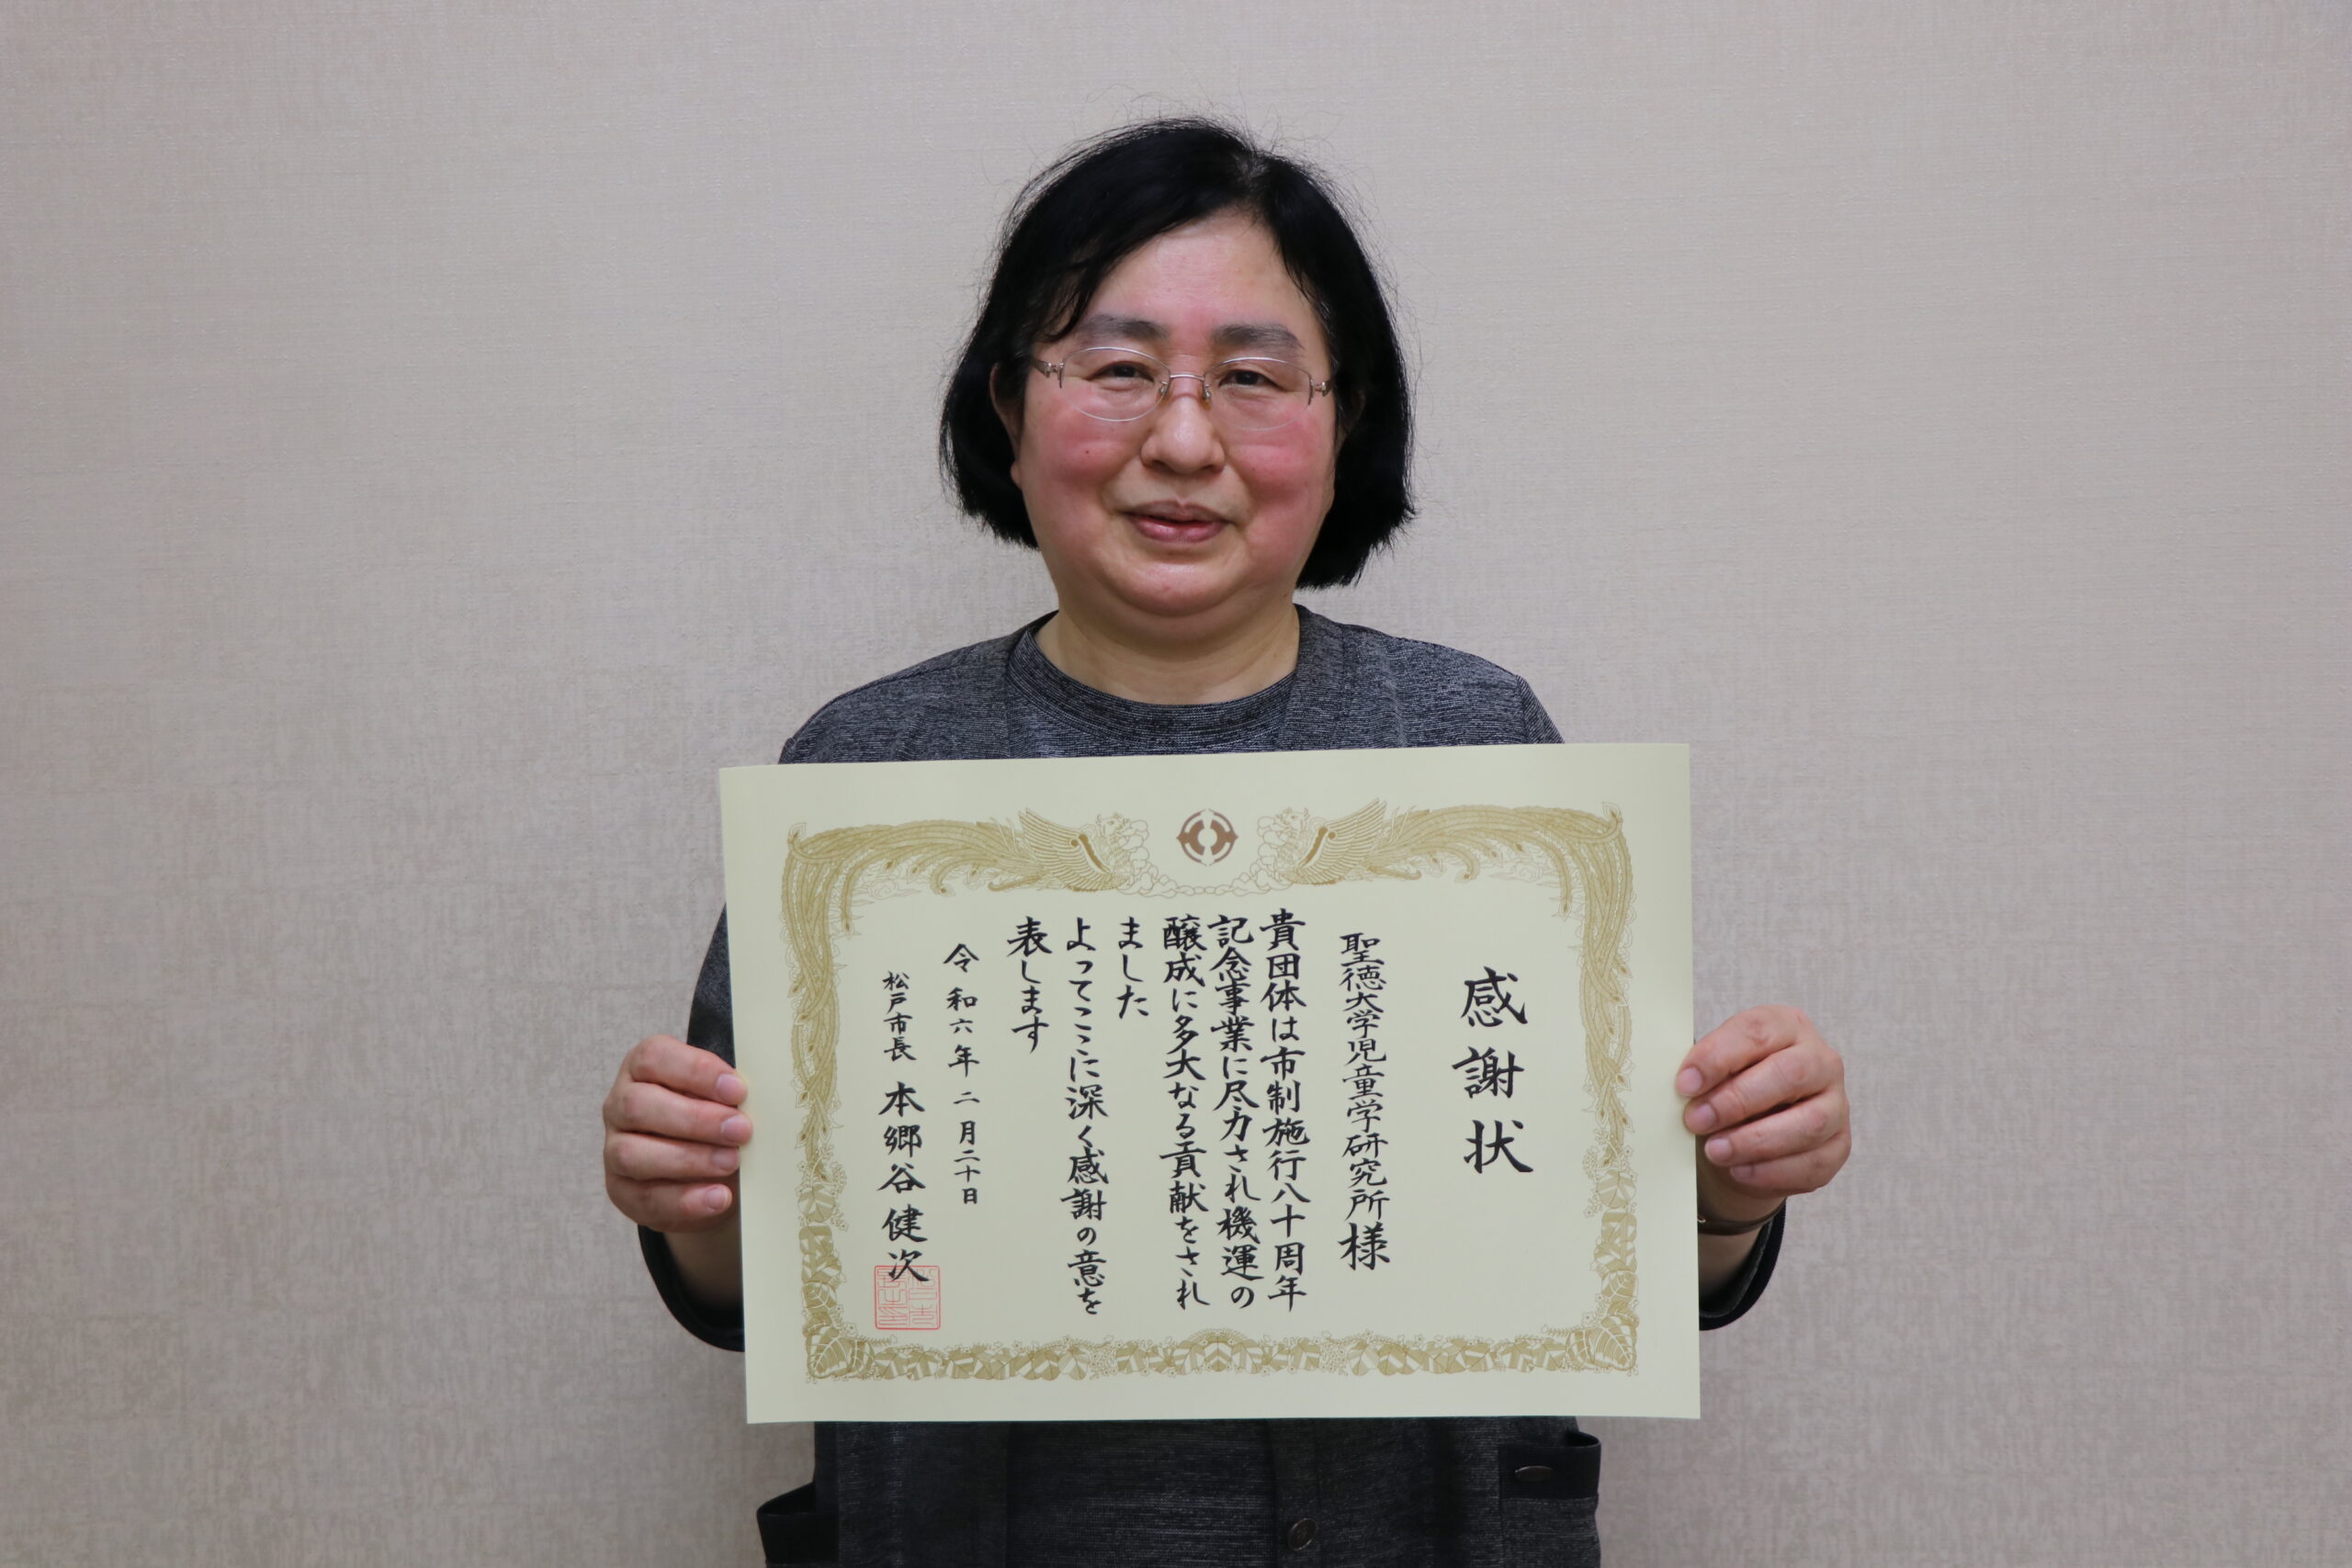 感謝状
聖徳大学児童学研究所様
貴団体は市制施行八十周年
記念事業に尽力され機運の
醸成に多大なる貢献をされ
ました
よってここに深く感謝の意を
表します
令和六年二月二十日
松戸市長 本郷谷健次